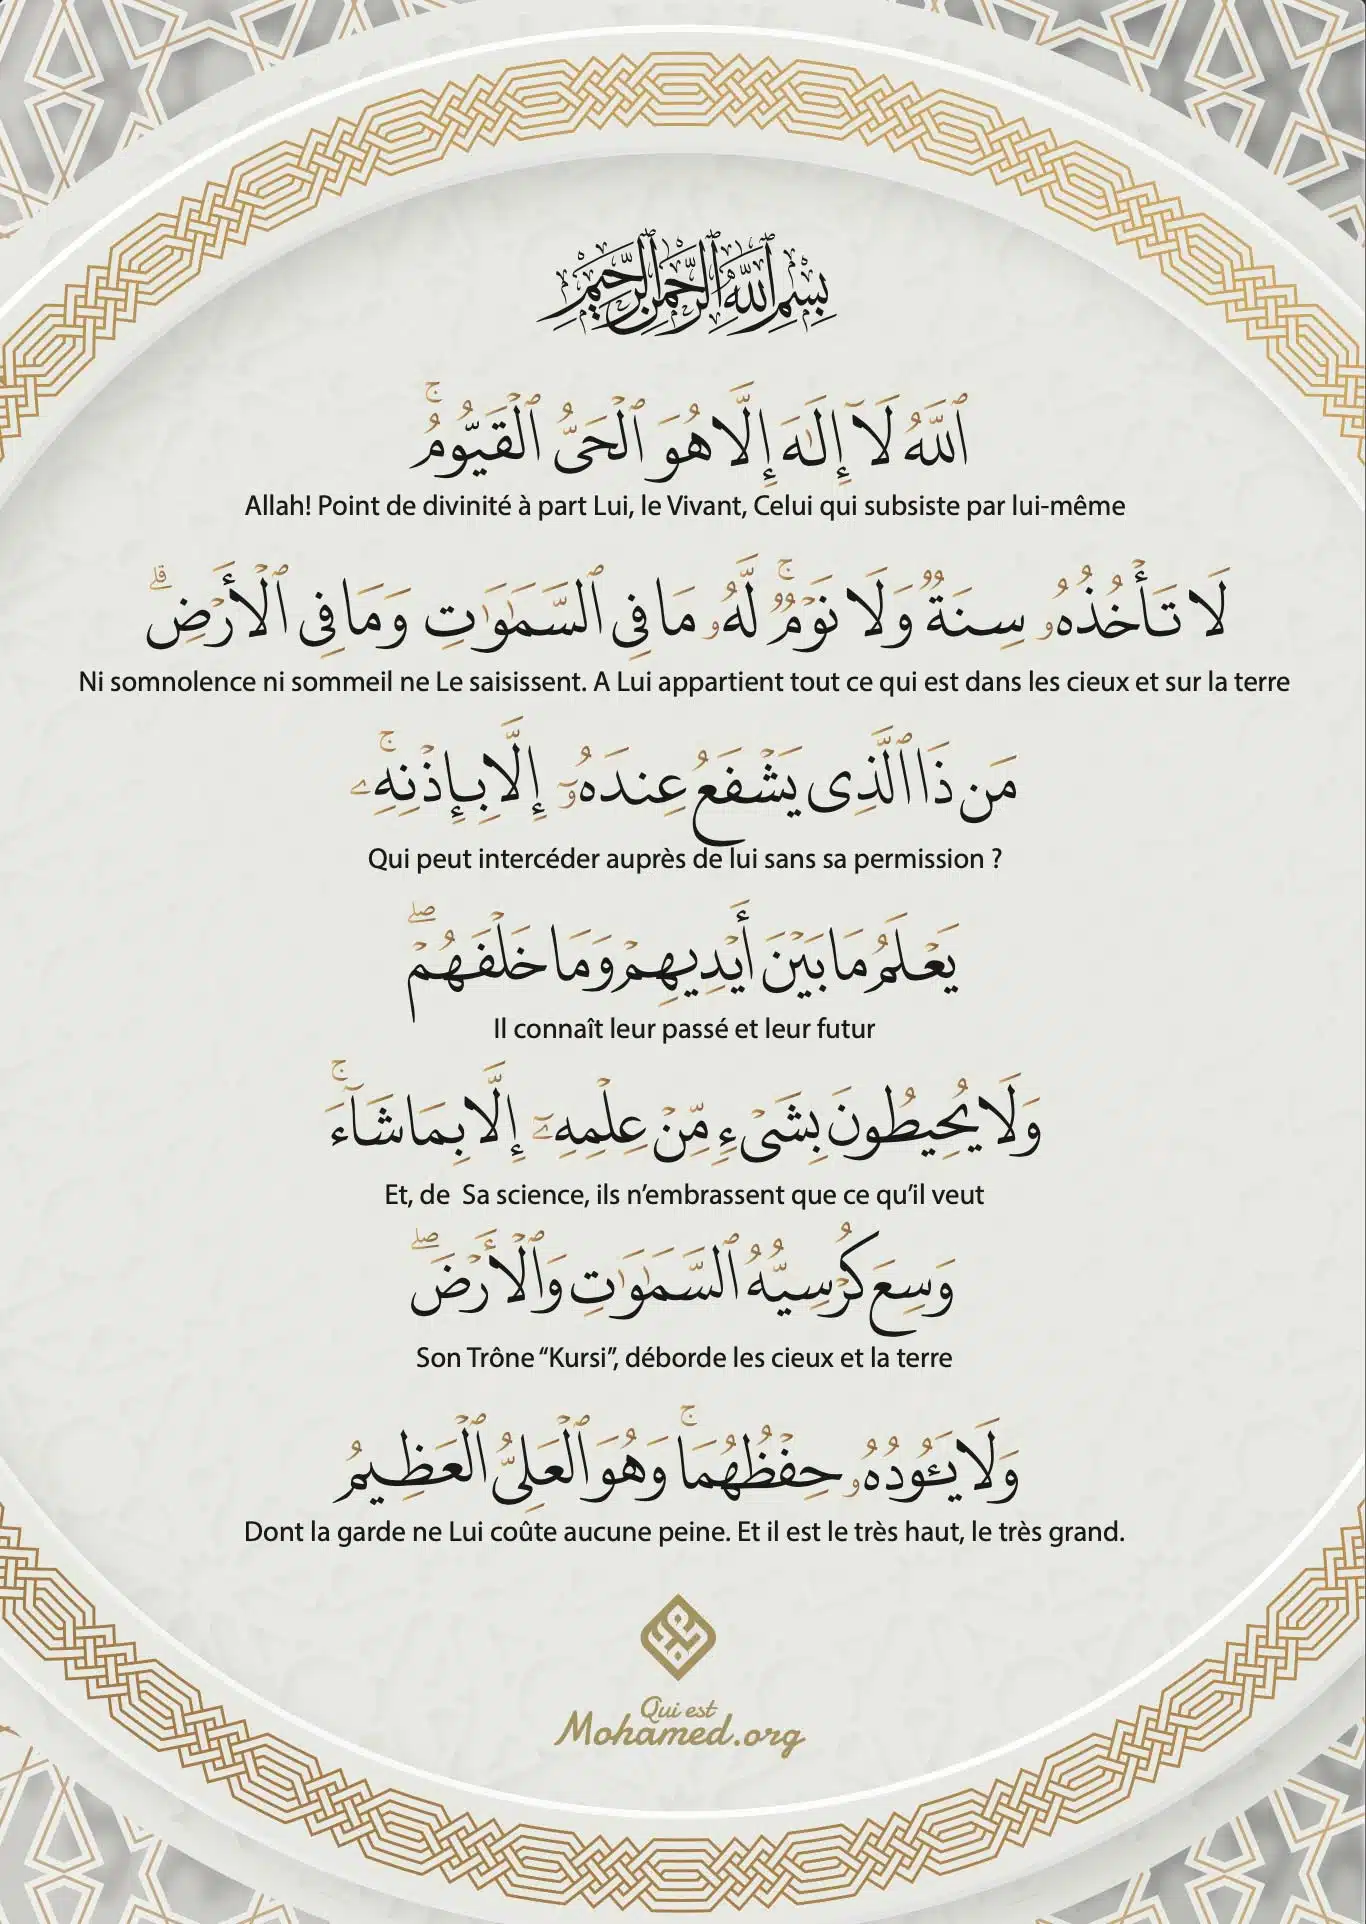 بِسْمِ اللَّهِ الرَّحْمَٰنِ الرَّحِيمِ
ٱللَّهُ لَآ إِلَٰهَ إِلَّا هُوَ ٱلْحَىُّ ٱلْقَيُّومُ ۚ
Allah! Point de divinité à part Lui, le Vivant, Celui qui subsiste par lui-même
لَا تَأْخُذُهُۥ سِنَةٌ وَلَا نَوْمٌ ۚ لَّهُۥ مَا فِى ٱلسَّمَٰوَٰتِ وَمَا فِى ٱلْأَرْضِ ۗ
Ni somnolence ni sommeil ne Le saisissent. A Lui appartient tout ce qui est dans les cieux et sur la terre
مَن ذَا ٱلَّذِى يَشْفَعُ عِندَهُۥٓ إِلَّا بِإِذْنِهِۦ ۚ
Qui peut intercéder auprès de lui sans sa permission ?
يَعْلَمُ مَا بَيْنَ أَيْدِيهِمْ وَمَا خَلْفَهُمْ ۖ
Il connaît leur passé et leur futur
وَلَا يُحِيطُونَ بِشَىْءٍ مِّنْ عِلْمِهِۦٓ إِلَّا بِمَا شَآءَ ۚ
Et, de  Sa science, ils n’embrassent que ce qu’il veut
وَسِعَ كُرْسِيُّهُ ٱلسَّمَٰوَٰتِ وَٱلْأَرْضَ ۖ
Son Trône “Kursi”, déborde les cieux et la terre
وَلَا يَـُٔودُهُۥ حِفْظُهُمَا ۚ وَهُوَ ٱلْعَلِىُّ ٱلْعَظِيمُ
Dont la garde ne Lui coûte aucune peine. Et il est le très haut, le très grand.
Qui est
Mohamed.org